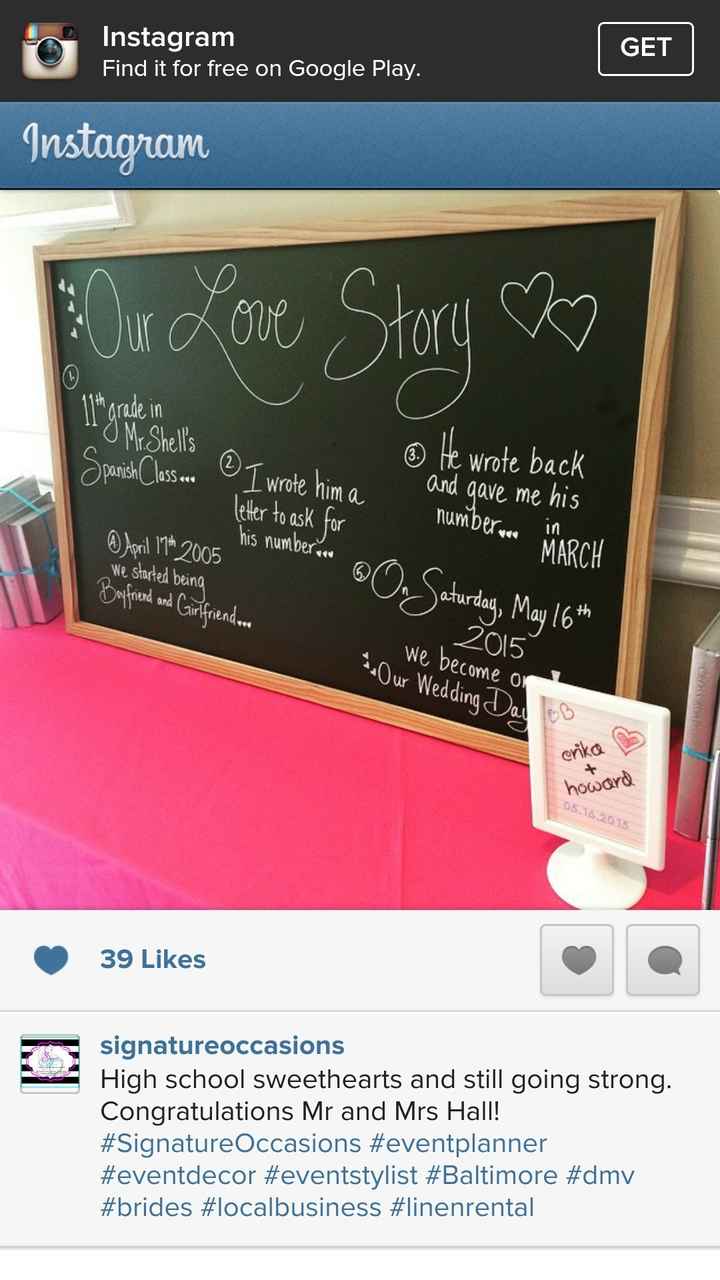 Instagram
Find it for free on Google Play.
GET
Instagram
Our Love Story
1.
11th grade in
Mr. Shell's
Spanish Class...
2.
I wrote him a
letter to ask for
his number...
3.
He wrote back
and gave me his
number... in
MARCH
4. April 17th 2005
we started being
Boyfriend and Girlfriend...
5. On Saturday, May 16th
2015
we become
Our Wedding Day
erika
+
howard
05.16.2015
39 Likes
signatureoccasions
High school sweethearts and still going strong.
Congratulations Mr and Mrs Hall!
#SignatureOccasions #eventplanner
#eventdecor #eventstylist #Baltimore #dmv
#brides #localbusiness #linenrental